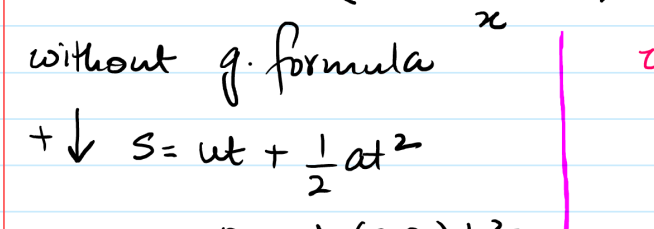 x
without g. formula
+↓ S= ut + 1/2 at²